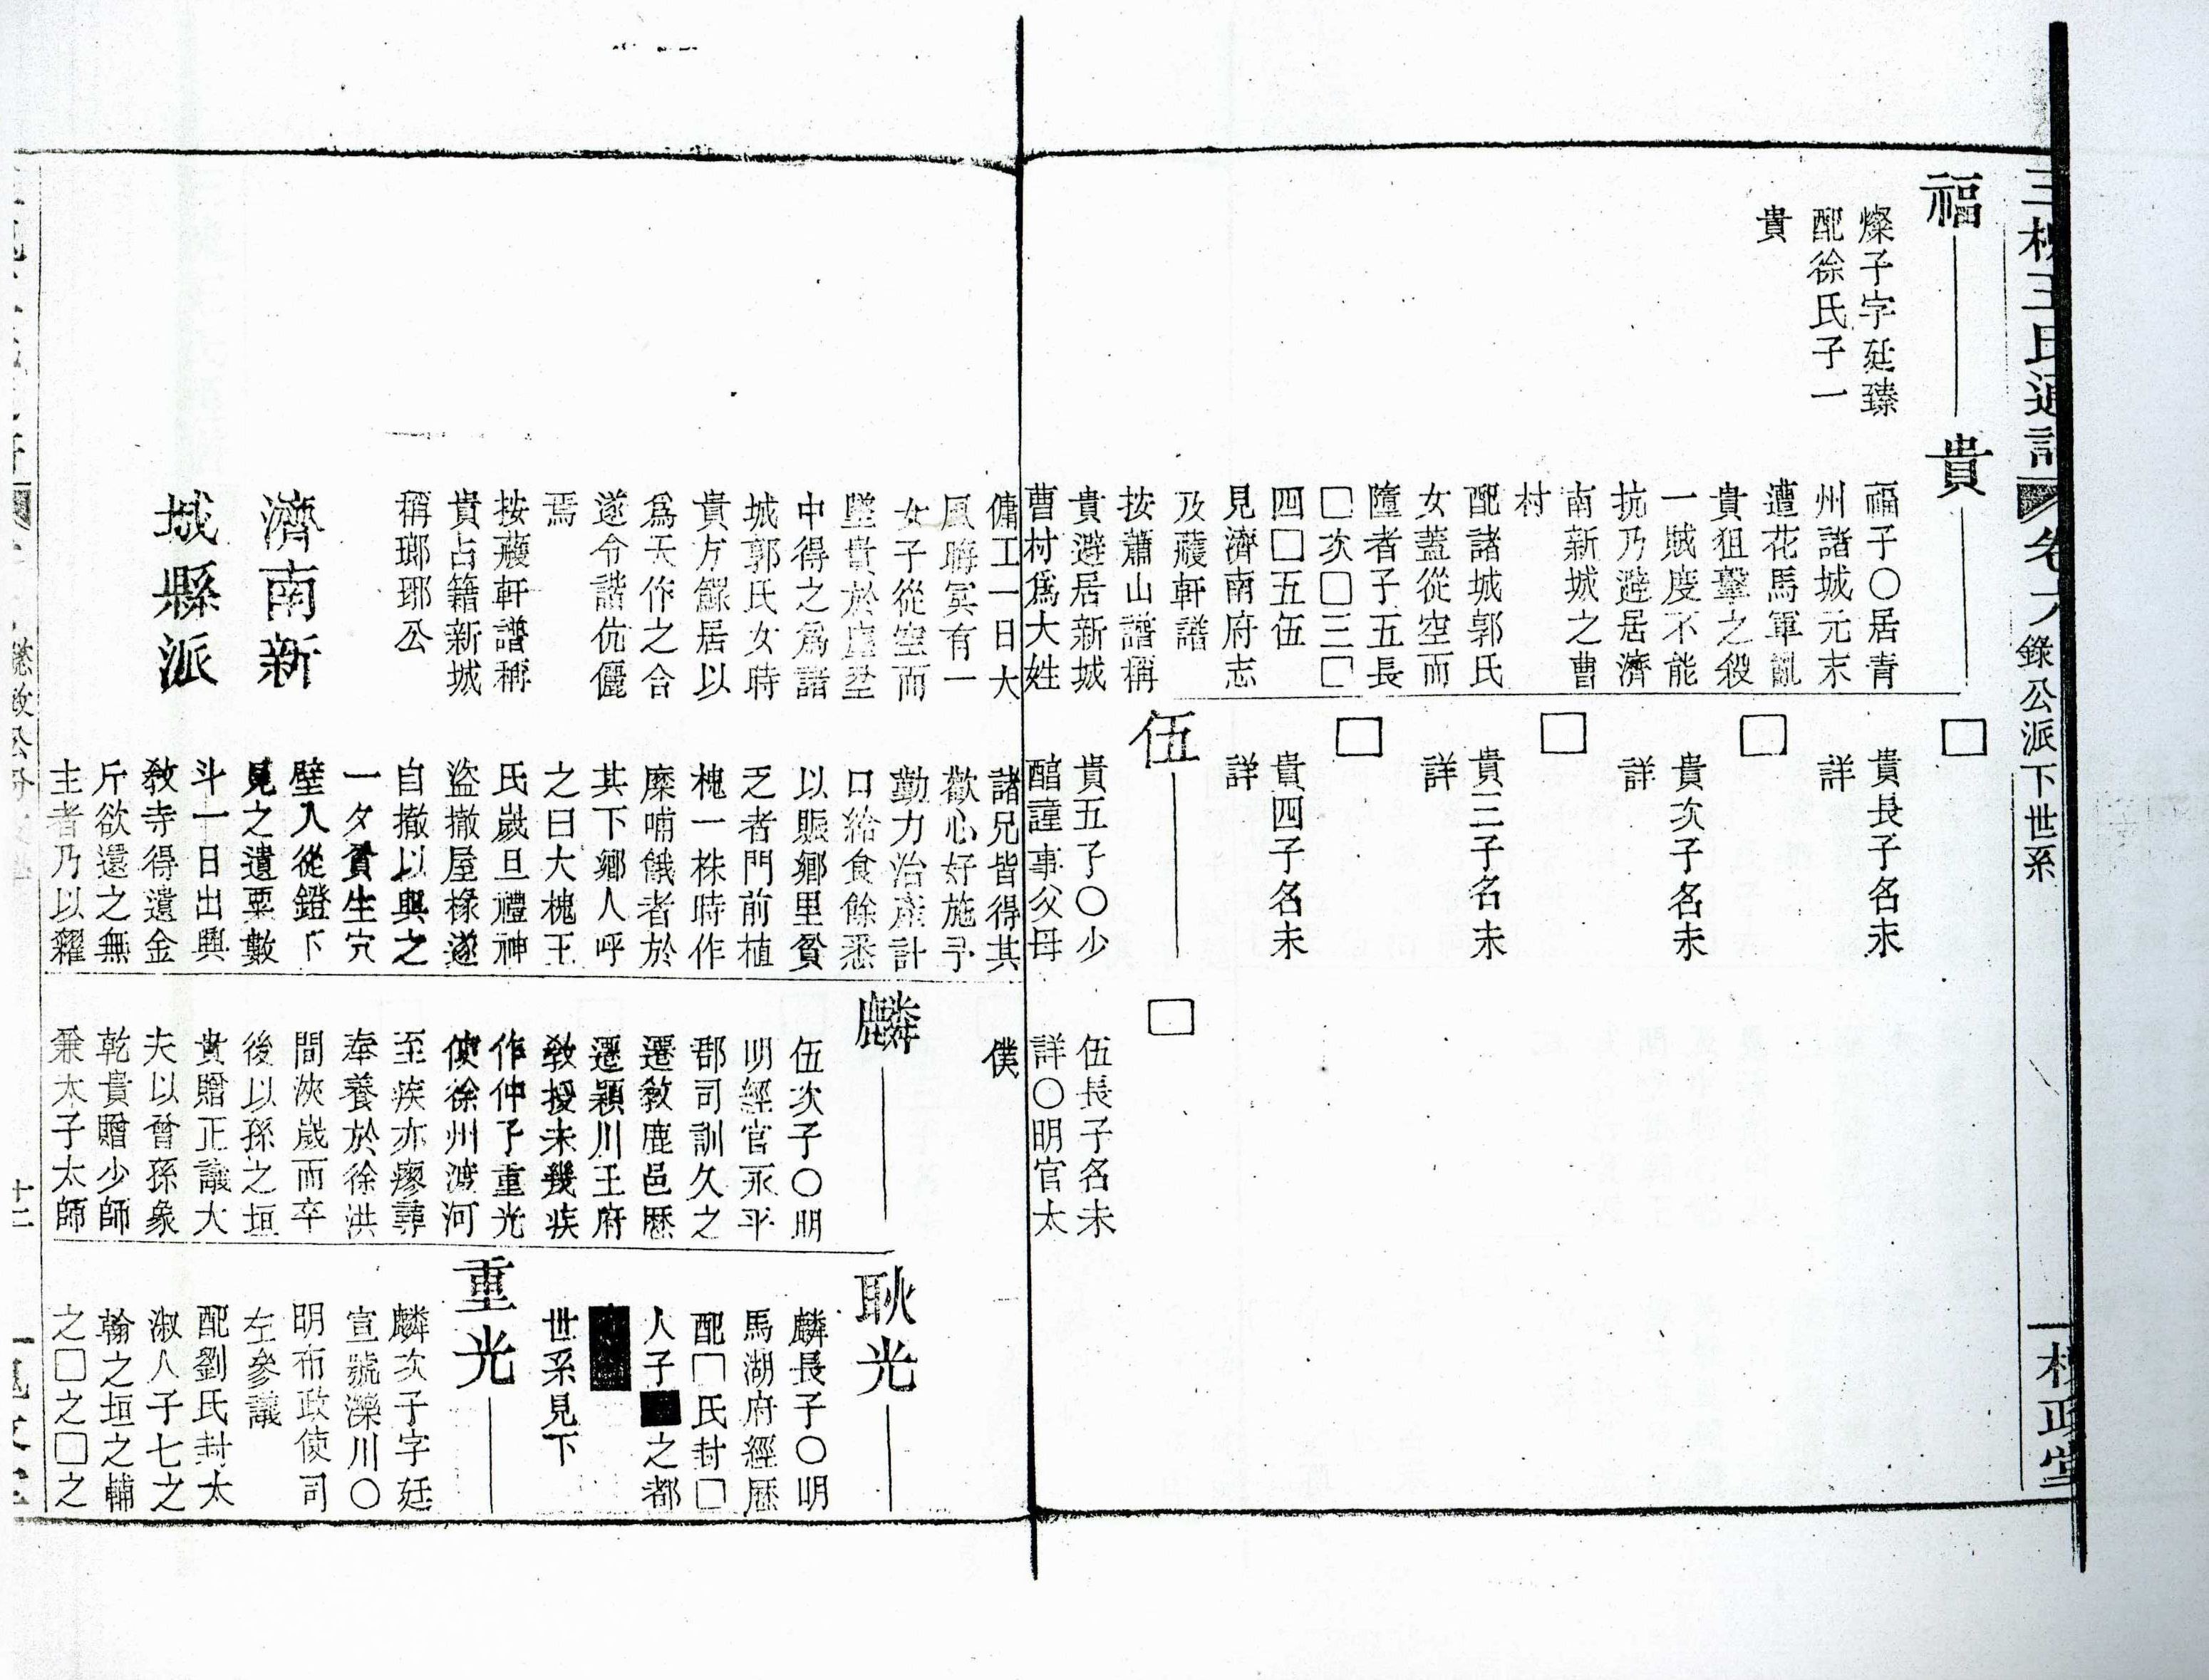 三槐王氏通譜
卷六
錄公派下世系
槐政堂
福
燦子字延臻
配徐氏子一
貴
貴
福子〇居青
州諸城元末
遭花馬軍亂
貴狙擊之殺
一賊度不能
抗乃避居濟
南新城之曹
村
配諸城郭氏
女蓋從空而
隨者子五長
□次□三□
四□五伍
見濟南府志
及薐軒譜
按蕭山譜稱
貴避居新城
曹村爲大姓
傭工一日大
風晦冥有一
女子從空而
墜貴於塵坌
中得之爲諸
城郭氏女時
貴方鰥居以
爲天作之合
遂令諧伉儷
焉
按薐軒譜稱
貴占籍新城
稱瑯琊公
濟南新
城縣派
□
貴長子名未
詳
□
貴次子名未
詳
□
貴三子名未
詳
□
貴四子名未
詳
伍
貴五子〇少
醕謹事父母
諸兄皆得其
歡心好施予
勤力治產計
口給食餘悉
以賑鄉里貧
乏者門前植
槐一株時作
糜哺餓者於
其下鄉人呼
之曰大槐王
氏歲旦禮神
盜撤屋椽遂
自撤以與之
一夕貧生穴
壁入從鐙下
見之遺粟數
斗一日出興
教寺得遺金
斤欲還之無
主者乃以糴
□
伍長子名未
詳〇明官太
僕
麟
伍次子〇明
明經官永平
郡司訓久之
遷教鹿邑歷
遷潁川王府
教授未幾疾
作仲子重光
使徐州渡河
至疾亦瘳尋
奉養於徐洪
間浹歲而卒
後以孫之垣
貴贈正議大
夫以曾孫象
乾貴贈少師
兼太子太師
耿光
麟長子〇明
馬湖府經歷
配□氏封□
人子■之都
世系見下
重光
麟次子字廷
宣號濼川〇
明布政使司
左參議
配劉氏封太
淑人子七之
翰之垣之輔
之□之□之
十二